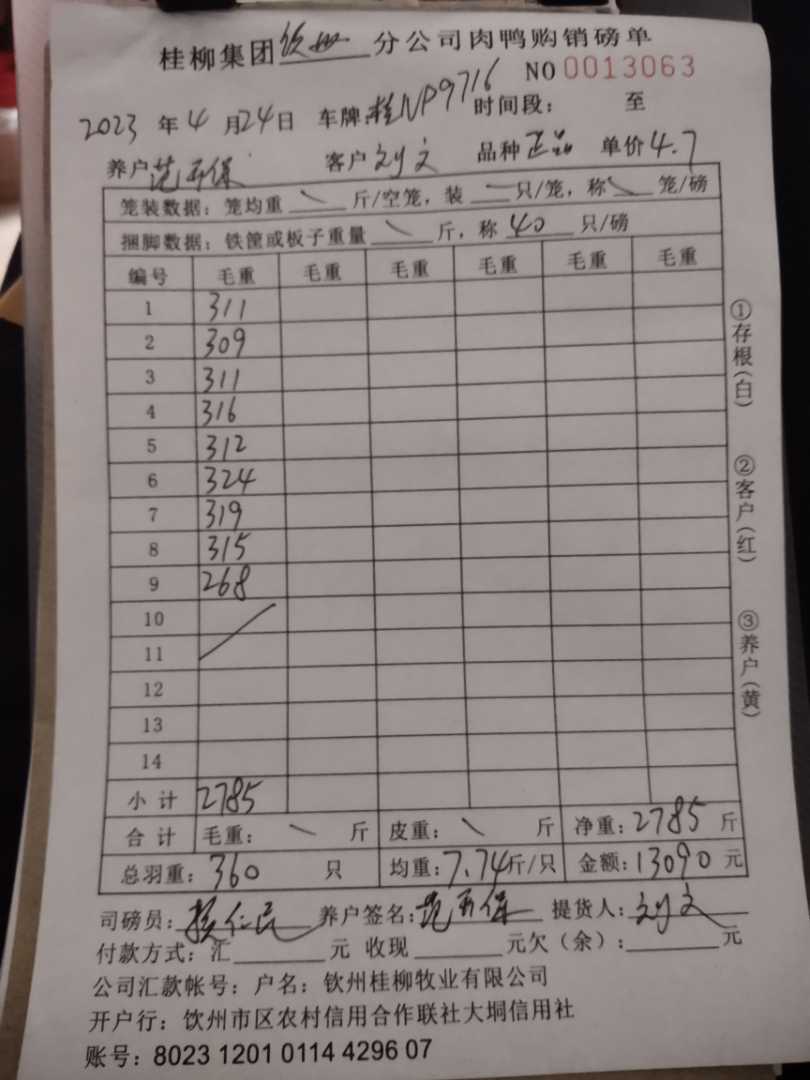 桂柳集团钦州分公司肉鸭购销磅单
NO 0013063
2023年4月24日 车牌桂NP9716 时间段: 至
养户范百保 客户刘文 品种正品 单价4.7
笼装数据: 笼均重 斤/空笼, 装 只/笼, 称 笼/磅
捆脚数据: 铁筐或板子重量 斤, 称 40 只/磅
编号 毛重 毛重 毛重 毛重 毛重 毛重
1 311
2 309
3 311
4 316
5 312
6 324
7 319
8 315
9 268
10
11
12
13
14
小计 2785
合计 毛重: 斤 皮重: 斤 净重: 2785 斤
总羽重: 360 只 均重: 7.74斤/只 金额: 13090 元
司磅员: 仁民 养户签名: 范百保 提货人: 刘文
付款方式: 汇 元 收现 元欠(余): 元
公司汇款帐号: 户名: 钦州桂柳牧业有限公司
开户行: 钦州市区农村信用合作联社大垌信用社
账号: 8023 1201 0114 4296 07
①存根(白)
②客户(红)
③养户(黄)